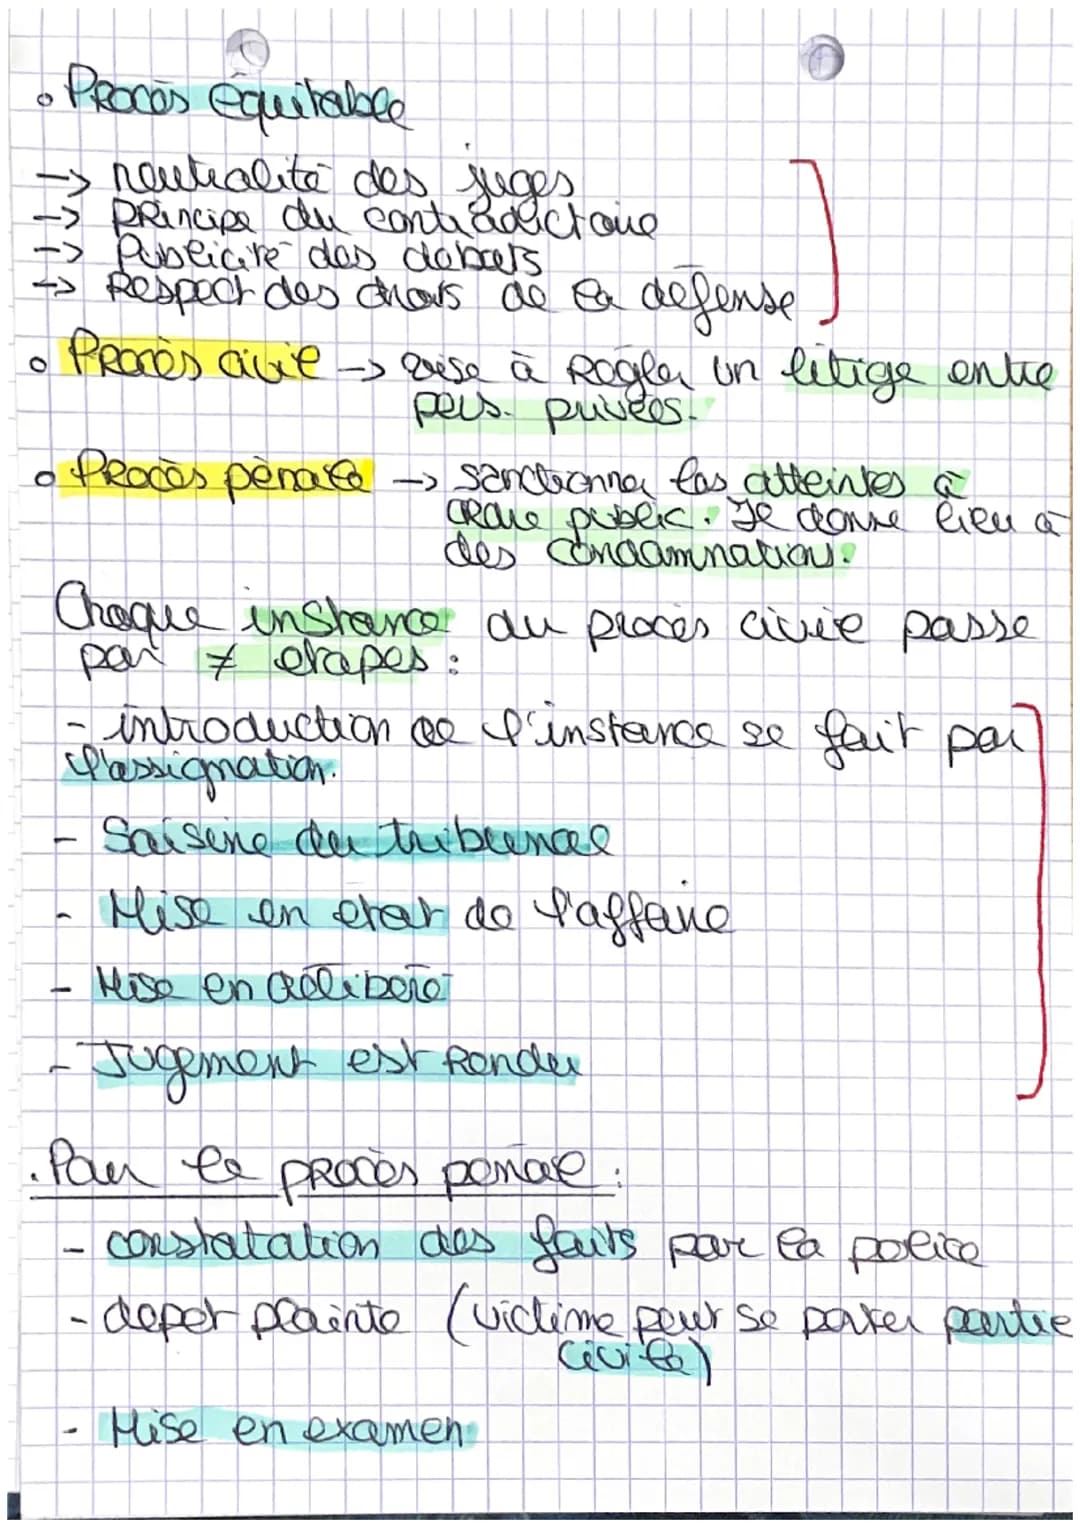 • Procès équitable
-> neutralité des juges
-> principe du contradictoire
-> Publicité des débats
-> Respect des droits de la défense
• Procès civil -> vise à Régler un litige entre
pers. privées.
• Procès pénale -> sanctionner les atteintes à
ordre public. Il donne lieu à
des condamnations.
Chaque instance du procès civile passe
par ≠ étapes :
- introduction de l'instance se fait par
l'assignation.
- Saisine du tribunal
- Mise en état de l'affaire
- Mise en délibéré
- Jugement est Rendu
. Pour le procès pénal :
- constatation des faits par la police
- depot plainte (victime peut se porter partie
civile)
- Mise en examen